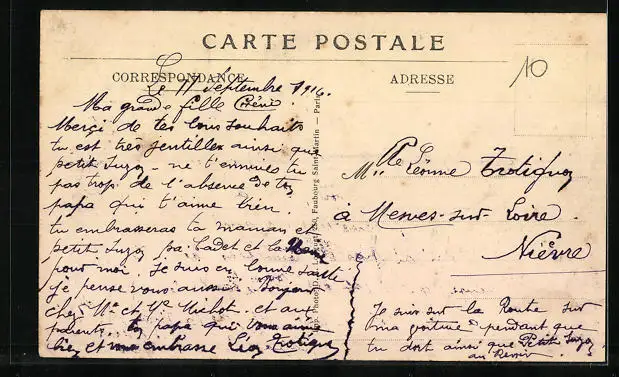 CARTE POSTALE
CORRESPONDANCE
ADRESSE
10
Le 11 septembre 1916.
Ma grande fille chérie
Merci de tes bons souhaits
tu est très gentille ainsi que
petit Zuzo ne t'ennuies tu
pas trop de l'absence de ton
papa qui t'aime bien.
tu embrasseras ta maman et
petit Zuzo pa Cadet et la Mémé
pour moi. Je suis en bonne santé
je pense vous aussi. Bonjour
chez Mr et Me Michot. et aux
parents. ton papa qui vous aime
bien et embrasse Léon Trotignon
Mlle Léonne Trotignon
à Mesves-sur-Loire.
Nièvre
Je suis sur la Route sur
ma voiture pendant que
tu dort ainsi que Petit Zuzo
au Revoir.
Faubourg Saint-Martin — Paris